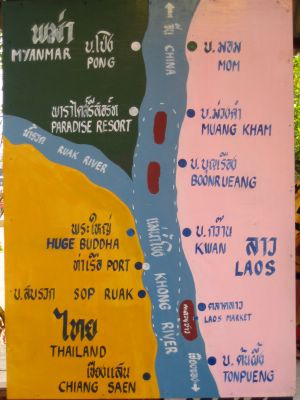 พม่า
MYANMAR
บ.โป่ง
PONG
จีน CHINA
บ.มอม
MOM
พาราไดค์รีสอร์ท
PARADISE RESORT
บ.ม่วงคำ
MUANG KHAM
น้ำรวก
RUAK RIVER
บ.บุญเรือง
BOONRUEANG
พระใหญ่
HUGE BUDDHA
ท่าเรือ PORT
แม่น้ำโขง KHONG RIVER
บ.กว๊าน
KWAN
ลาว
LAOS
บ.สบรวก SOP RUAK
ตลาดลาว
LAOS MARKET
ไทย
THAILAND
เชียงแสน
CHIANG SAEN
บ.ต้นผึ้ง
TONPUENG